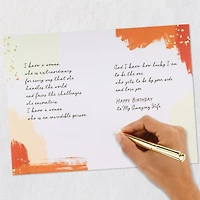 I know a woman
who is extraordinary
for every way that she
handles the world
and faces the challenges
she encounters.
I know a woman
who is an incredible person.
And I know how lucky I am
to be the one
who gets to be by your side
and love you.
HAPPY BIRTHDAY
to My Amazing Wife